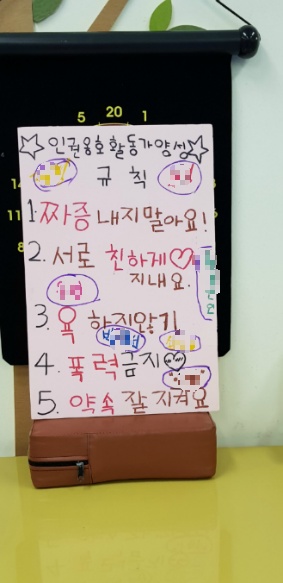 5 20 1
☆인권옹호활동가양성☆
규 칙
1. 짜증 내지말아요!
2. 서로 친하게♡
지내요.
3. 욕 하지않기
4. 폭력금지♡
5. 약속 잘 지켜요